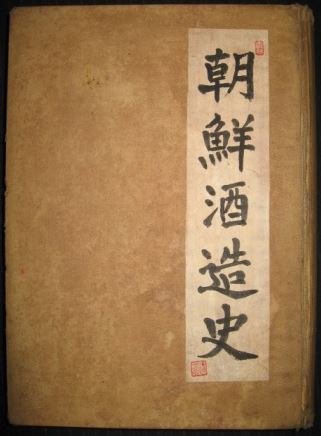 朝鮮酒造史